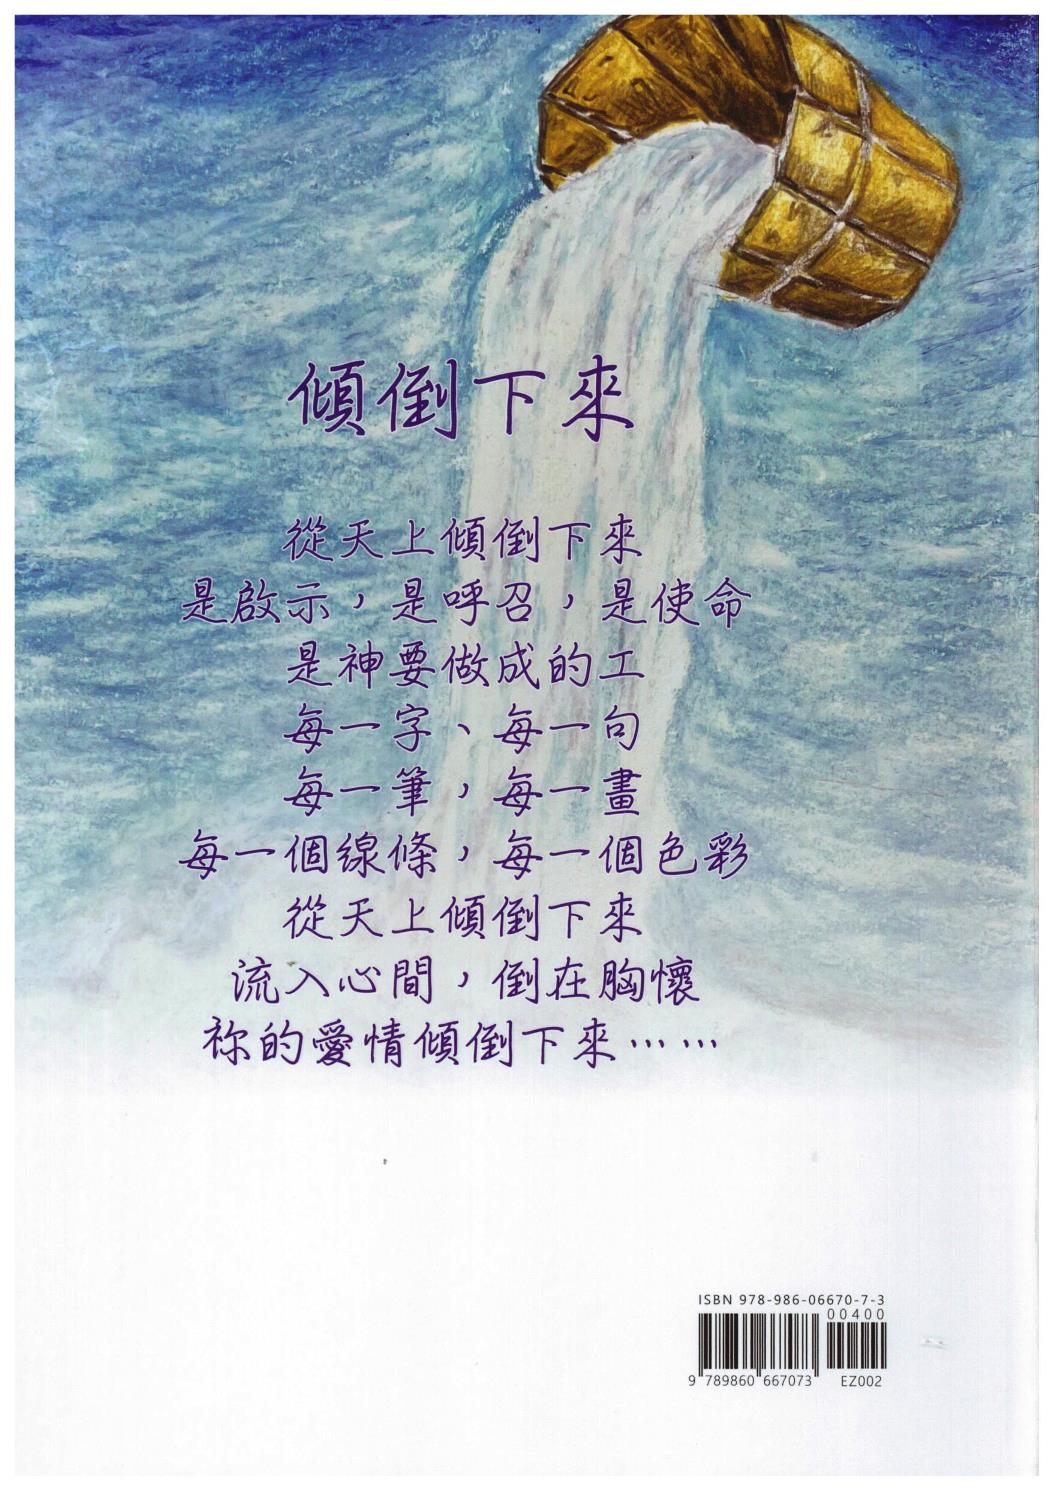 傾倒下來
從天上傾倒下來
是啟示，是呼召，是使命
是神要做成的工
每一字、每一句
每一筆，每一畫
每一個線條，每一個色彩
從天上傾倒下來
流入心間，倒在胸懷
祢的愛情傾倒下來……
ISBN 978-986-06670-7-3
00400
9 789860 667073 EZ002